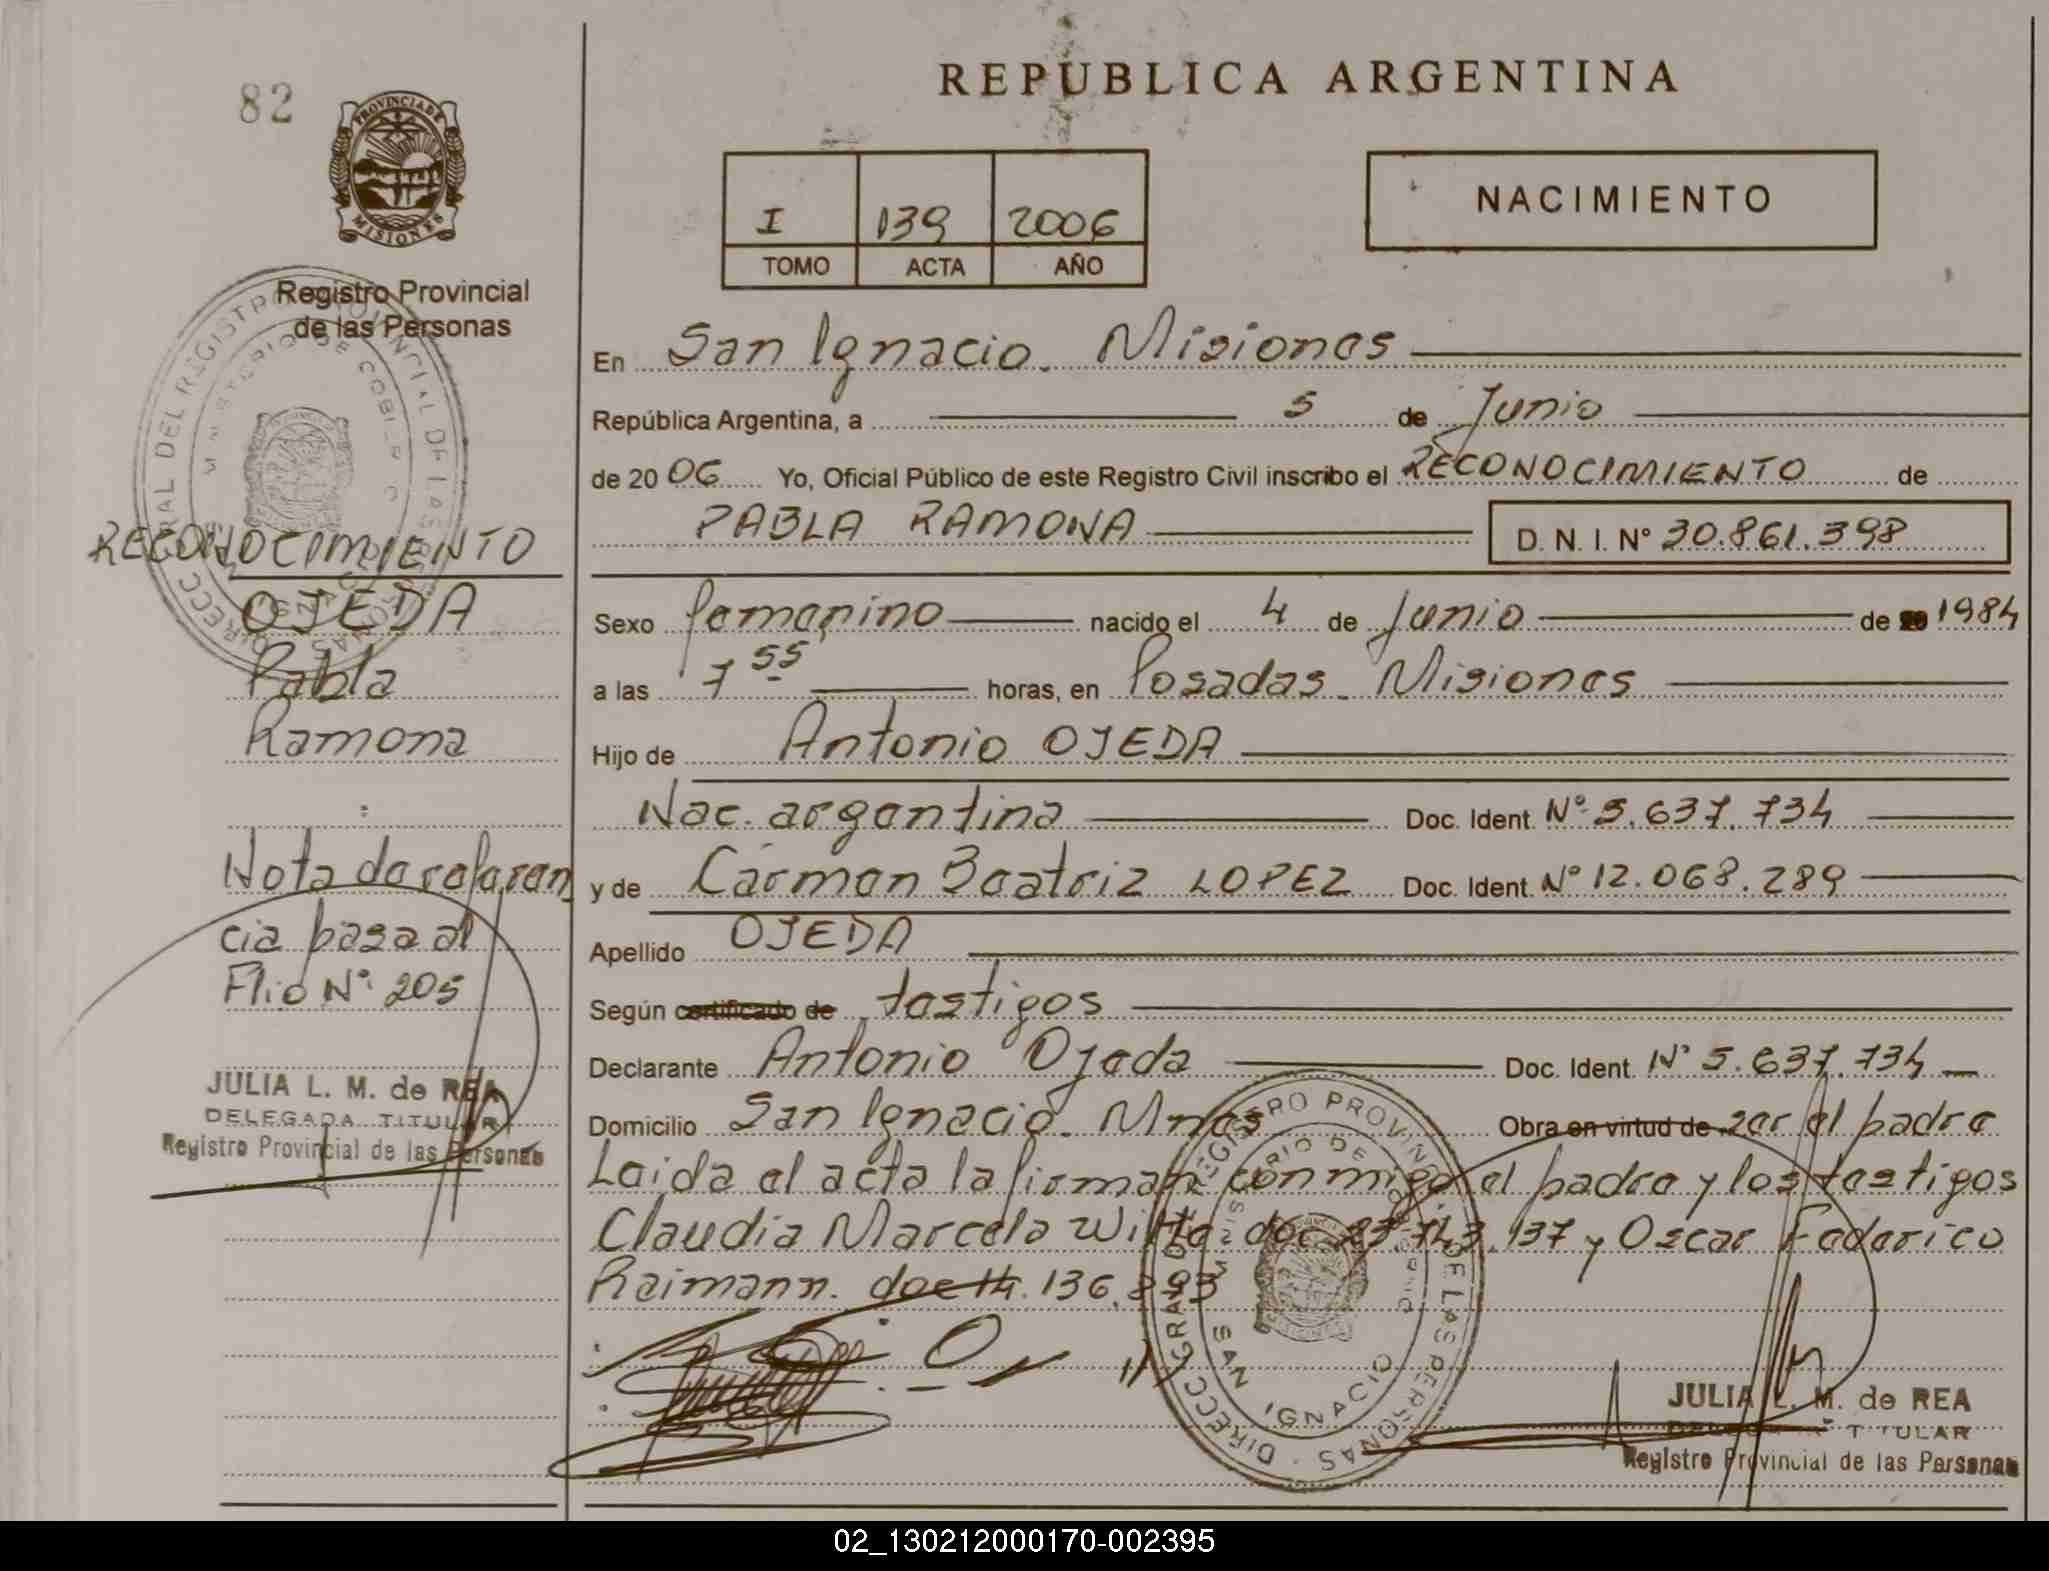 82
PROVINCIA DE
MISIONES
Registro Provincial
de las Personas
RECONOCIMIENTO
OJEDA
Pabla
Ramona
Nota de referen
cia pasa al
Flio Nº 205
JULIA L. M. de REA
DELEGADA TITULAR
Registro Provincial de las Personas
REPUBLICA ARGENTINA
I 139 2006
TOMO ACTA AÑO
NACIMIENTO
En San Ignacio. Misiones
República Argentina, a 5 de Junio
de 2006 Yo, Oficial Público de este Registro Civil inscribo el RECONOCIMIENTO de
PABLA RAMONA D. N. I. Nº 30.861.398
Sexo femenino nacido el 4 de Junio de 1984
a las 7 55 horas, en Posadas. Misiones
Hijo de Antonio OJEDA
Nac. argentina Doc. Ident. Nº 5.637.734
y de Carmen Beatriz LOPEZ Doc. Ident. Nº 12.068.289
Apellido OJEDA
Según certificado de testigos
Declarante Antonio Ojeda Doc. Ident. Nº 5.637.734
Domicilio San Ignacio. Mnes Obra en virtud de ser el padre
Leida el acta la firman conmigo el padre y los testigos
Claudia Marcela Witte doc 23.743.137 y Oscar Federico
Reimann. doc 14.136.893
DIRECC GRAL DEL REGISTRO PROVINCIAL DE LAS PERSONAS
MINISTERIO DE GOBIERNO
SAN IGNACIO
JULIA L. M. de REA
DELEGADA TITULAR
Registro Provincial de las Personas
02_130212000170-002395